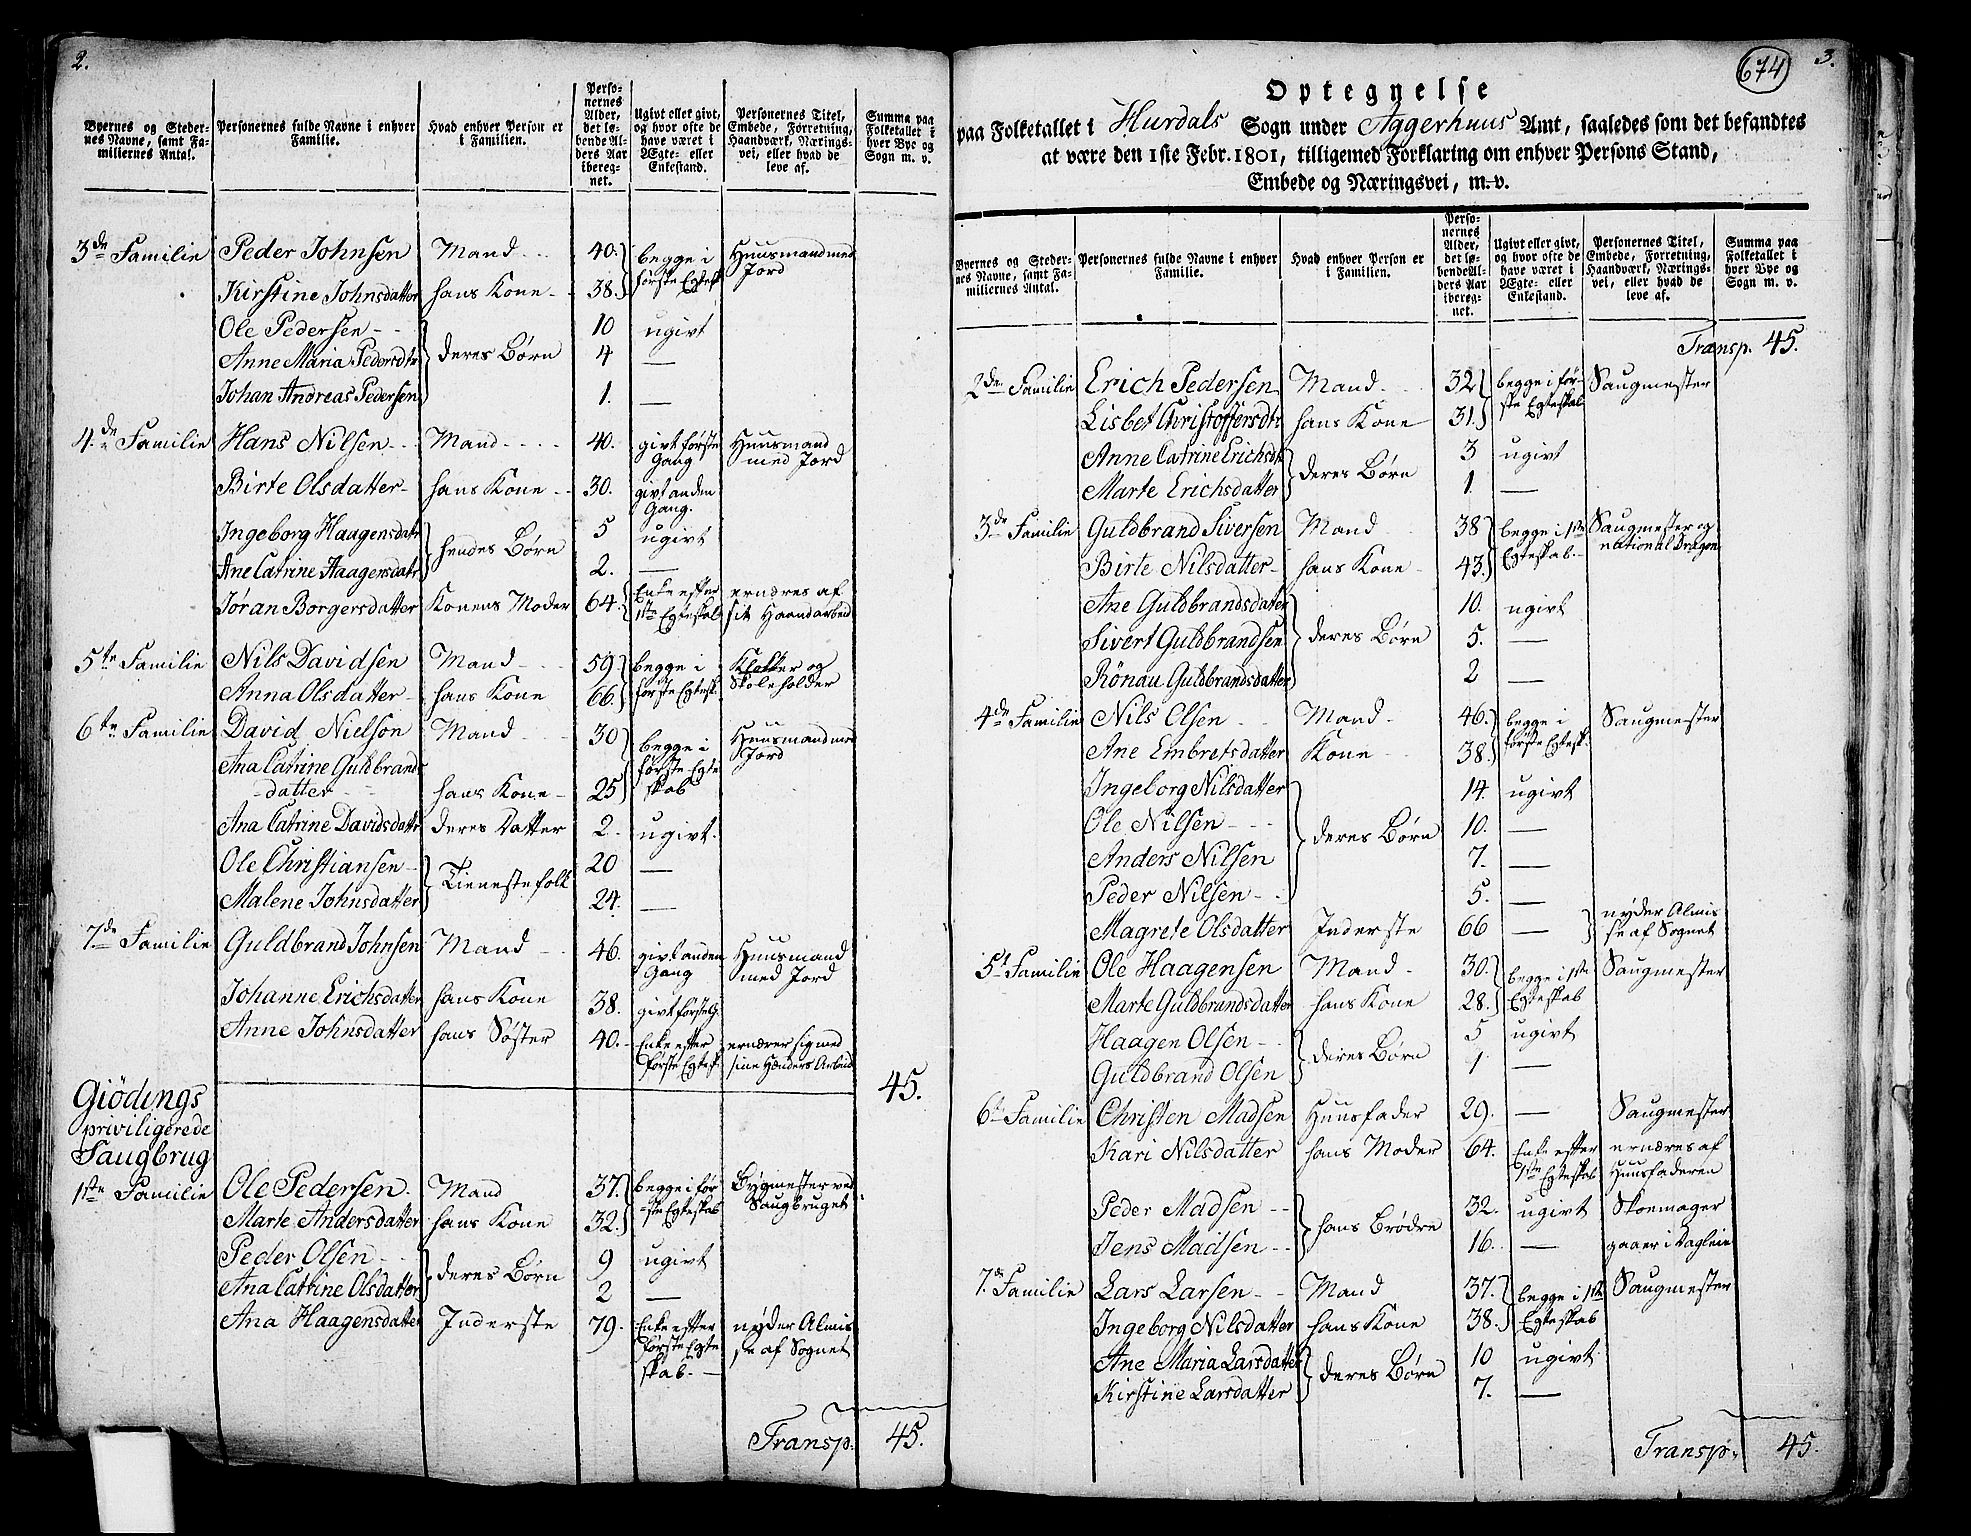 2.
Byernes og Steder-
nes Navne, samt Fa-
miliernes Antal.
Personernes fulde Navne i enhver
Familie.
Hvad enhver Person er
i Familien.
Perso-
nernes
Alder,
det lø-
bende Al-
ders Aar
iberegnet.
Ugivt eller givt,
og hvor ofte de
have været i
Ægte- eller
Enkestand.
Personernes Titel,
Embede, Forretning,
Haandværk, Nærings-
vei, eller hvad de
leve af.
Summa paa
Folketallet i
hver Bye og
Sogn m. v.
3de Familie Peder Johnsen Mand 40. begge i første Egtesk Huusmand med Jord
Kirstine Johnsdatter hans Kone 38.
Ole Pedersen deres Børn 10 ugivt
Anne Maria Pedersdtr 4 —
Johan Andreas Pedersen 1. —
4de Familie Hans Nilsen Mand 40. givt første Gang Huusmand med Jord
Birte Olsdatter hans Kone 30. givt anden Gang.
Ingeborg Haagensdatr hendes Børn 5 ugivt
Ane Catrine Haagensdatr 2. —
Jøran Borgersdatter Konens Moder 64. Enke efter 1ste Egteskab ernæres af sit Haandarbeid
5te Familie Nils Davidsen Mand 59 begge i første Egtesk. Klokker og Skoleholder
Anna Olsdatter hans Kone 66.
6te Familie David Nielson Mand 30 begge i første Egteskab Huusmand med Jord
Ana Catrine Guldbrands-
datter hans Kone 25
Ana Catrine Davidsdatter deres Datter 2. ugivt.
Ole Christiansen Tienestefolk 20 —
Malene Johnsdatter 24. —
7de Familie Guldbrand Johnsen Mand 46. givt anden Gang Huusmand med Jord
Johanne Erichsdatter hans Kone 38. givt første g.
Anne Johnsdatter hans Søster 40. Enke efter første Egtesk. ernærer sig med sine Hænders Arbeid
45.
Giödings
priviligerede
Saugbrug
1ste Familie Ole Pedersen Mand 37. begge i første Egteskab Bygmester ved Saugbruget
Marte Andersdatter hans Kone 32.
Peder Olsen deres Børn 9 ugivt
Ana Catrine Olsdatter 2 —
Ana Haagensdatter Inderste 79. Enke efter første Egteskab. nyder Almisse af Sognet
Transp. 45.
674
3.
Optegnelse
paa Folketallet i Hurdals Sogn under Aggerhuus Amt, saaledes som det befandtes
at være den 1ste Febr. 1801, tilligemed Forklaring om enhver Persons Stand,
Embede og Næringsvei, m. v.
Byernes og Steder-
nes Navne, samt Fa-
miliernes Antal.
Personernes fulde Navne i enhver
Familie.
Hvad enhver Person er
i Familien.
Perso-
nernes
Alder,
det lø-
bende Al-
ders Aar
iberegnet.
Ugivt eller givt,
og hvor ofte de
have været i
Ægte- eller
Enkestand.
Personernes Titel,
Embede, Forretning,
Haandværk, Nærings-
vei, eller hvad de
leve af.
Summa paa
Folketallet i
hver Bye og
Sogn m. v.
Transp. 45.
2den Familie Erich Pedersen Mand 32 begge i første Egteskab Saugmester
Lisbet Christoffersdtr hans Kone 31.
Anne Catrine Erichsdtr deres Børn 3 ugivt
Marte Erichsdatter 1. —
3de Familie Guldbrand Siversen Mand 38 begge i 1ste Egteskab Saugmester og national Dragon
Birte Nilsdatter hans Kone 43.
Ane Guldbrandsdatter deres Børn 10. ugivt
Sivert Guldbrandsen 5. —
Rönau Guldbrandsdatter 2 —
4de Familie Nils Olsen Mand 46. begge i første Egtesk. Saugmester
Ane Embretsdatter Kone 38.
Ingeborg Nilsdatter deres Børn 14. ugivt
Ole Nilsen 10. —
Anders Nilsen 7. —
Peder Nilsen 5. —
Magrete Olsdatter Inderste 66 — nyder Almisse af Sognet
5t Familie Ole Haagensen Mand 30. begge i 1ste Egteskab Saugmester
Marte Guldbrandsdatter hans Kone 28.
Haagen Olsen deres Børn 5 ugivt
Guldbrand Olsen 1. —
6te Familie Christen Madsen Huusfader 29. — Saugmester
Kari Nilsdatter hans Moder 64. Enke efter 1ste Egteskab ernæres af Huusfaderen
Peder Madsen hans Brødre 32. ugivt Skoemager
Jens Madsen 16. — gaaer i Dagleie
7de Familie Lars Larsen Mand 37. begge i 1ste Egteskab Saugmester
Ingeborg Nilsdatter hans Kone 38.
Ane Maria Larsdatter deres Børn 10 ugivt
Kirstine Larsdatter 7. —
Transp. 45.